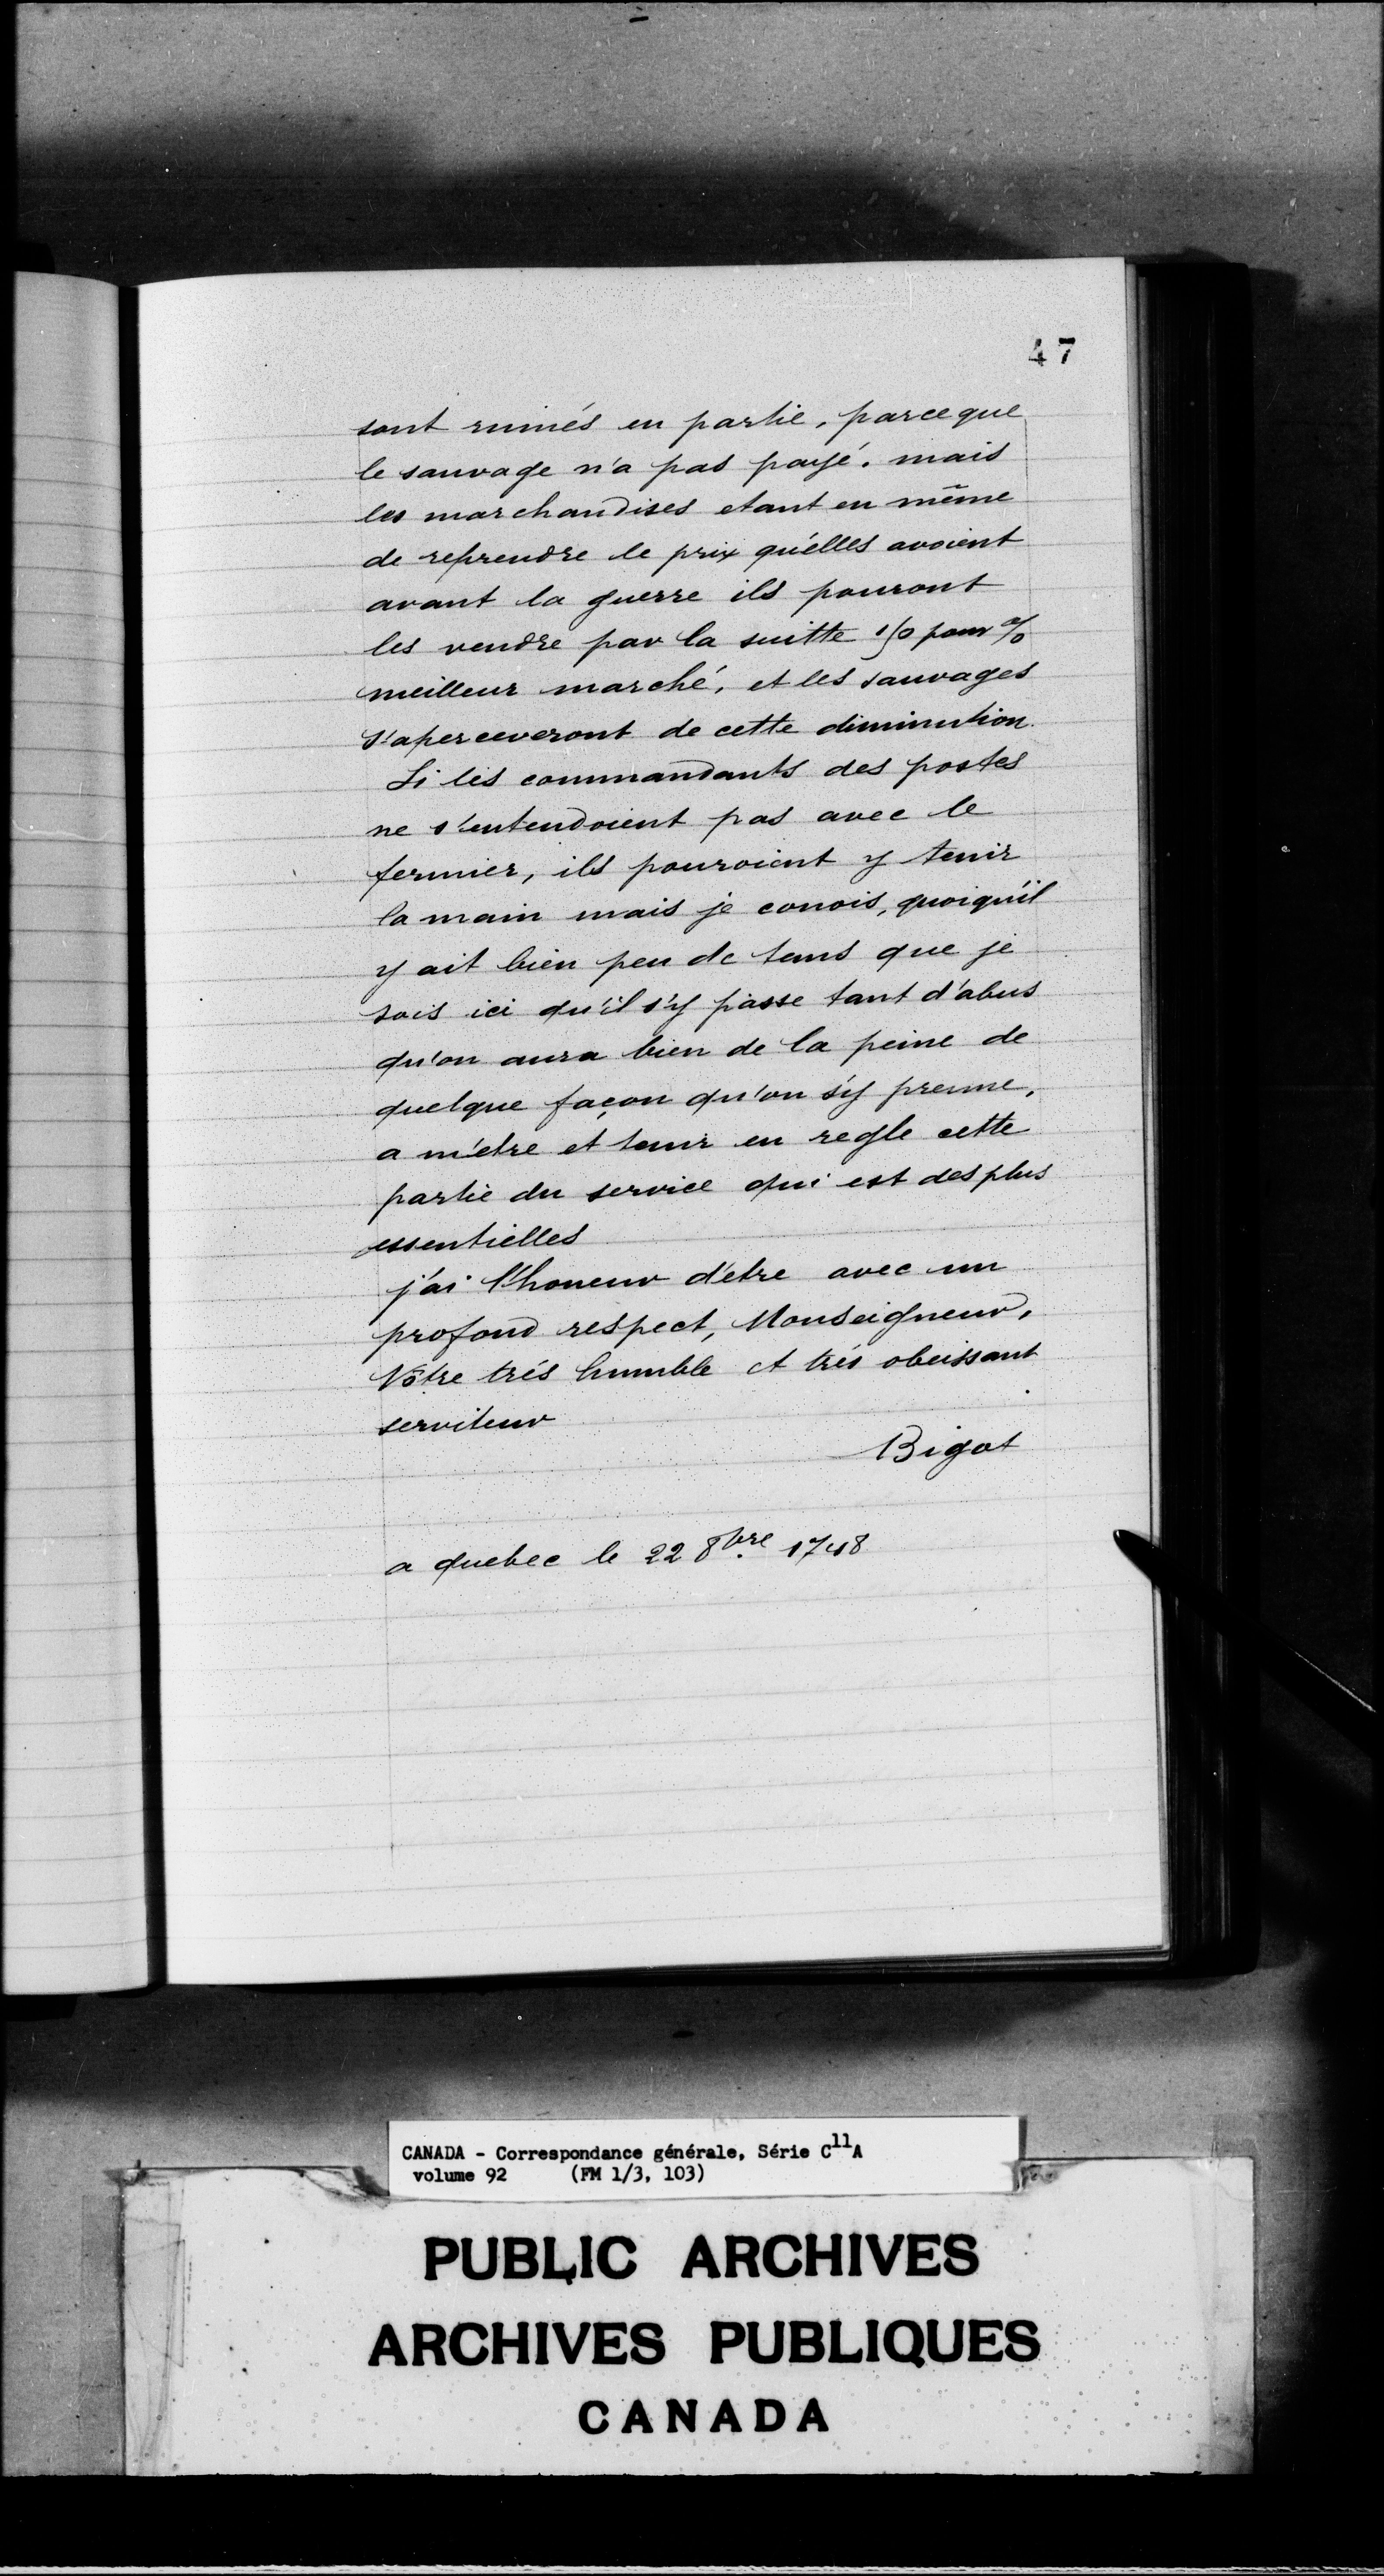 47
sont ruinés en partie, parceque
le sauvage n'a pas payé. mais
les marchandises etant en même
de reprendre le prix qu'elles avoient
avant la guerre ils pouront
les vendre par la suitte 150 pour %
meilleur marché, et les sauvages
s'aperceveront de cette diminution.
Si les commandants des postes
ne s'entendoient pas avec le
fermier, ils pouroient y tenir
la main mais je conois, quoiqu'il
y ait bien peu de tems que je
sois ici qu'il s'y passe tant d'abus
qu'on aura bien de la peine de
quelque façon qu'on s'y prenne,
a métre et tenir en regle cette
partie du service qui est des plus
essentielles
j'ai l'honeur d'etre avec un
profond respect, Monseigneur,
Vôtre trés humble et trés obeissant
serviteur
Bigot
a quebec le 22 8bre 1748
CANADA - Correspondance générale, Série C11A
volume 92 (FM 1/3, 103)
PUBLIC ARCHIVES
ARCHIVES PUBLIQUES
CANADA